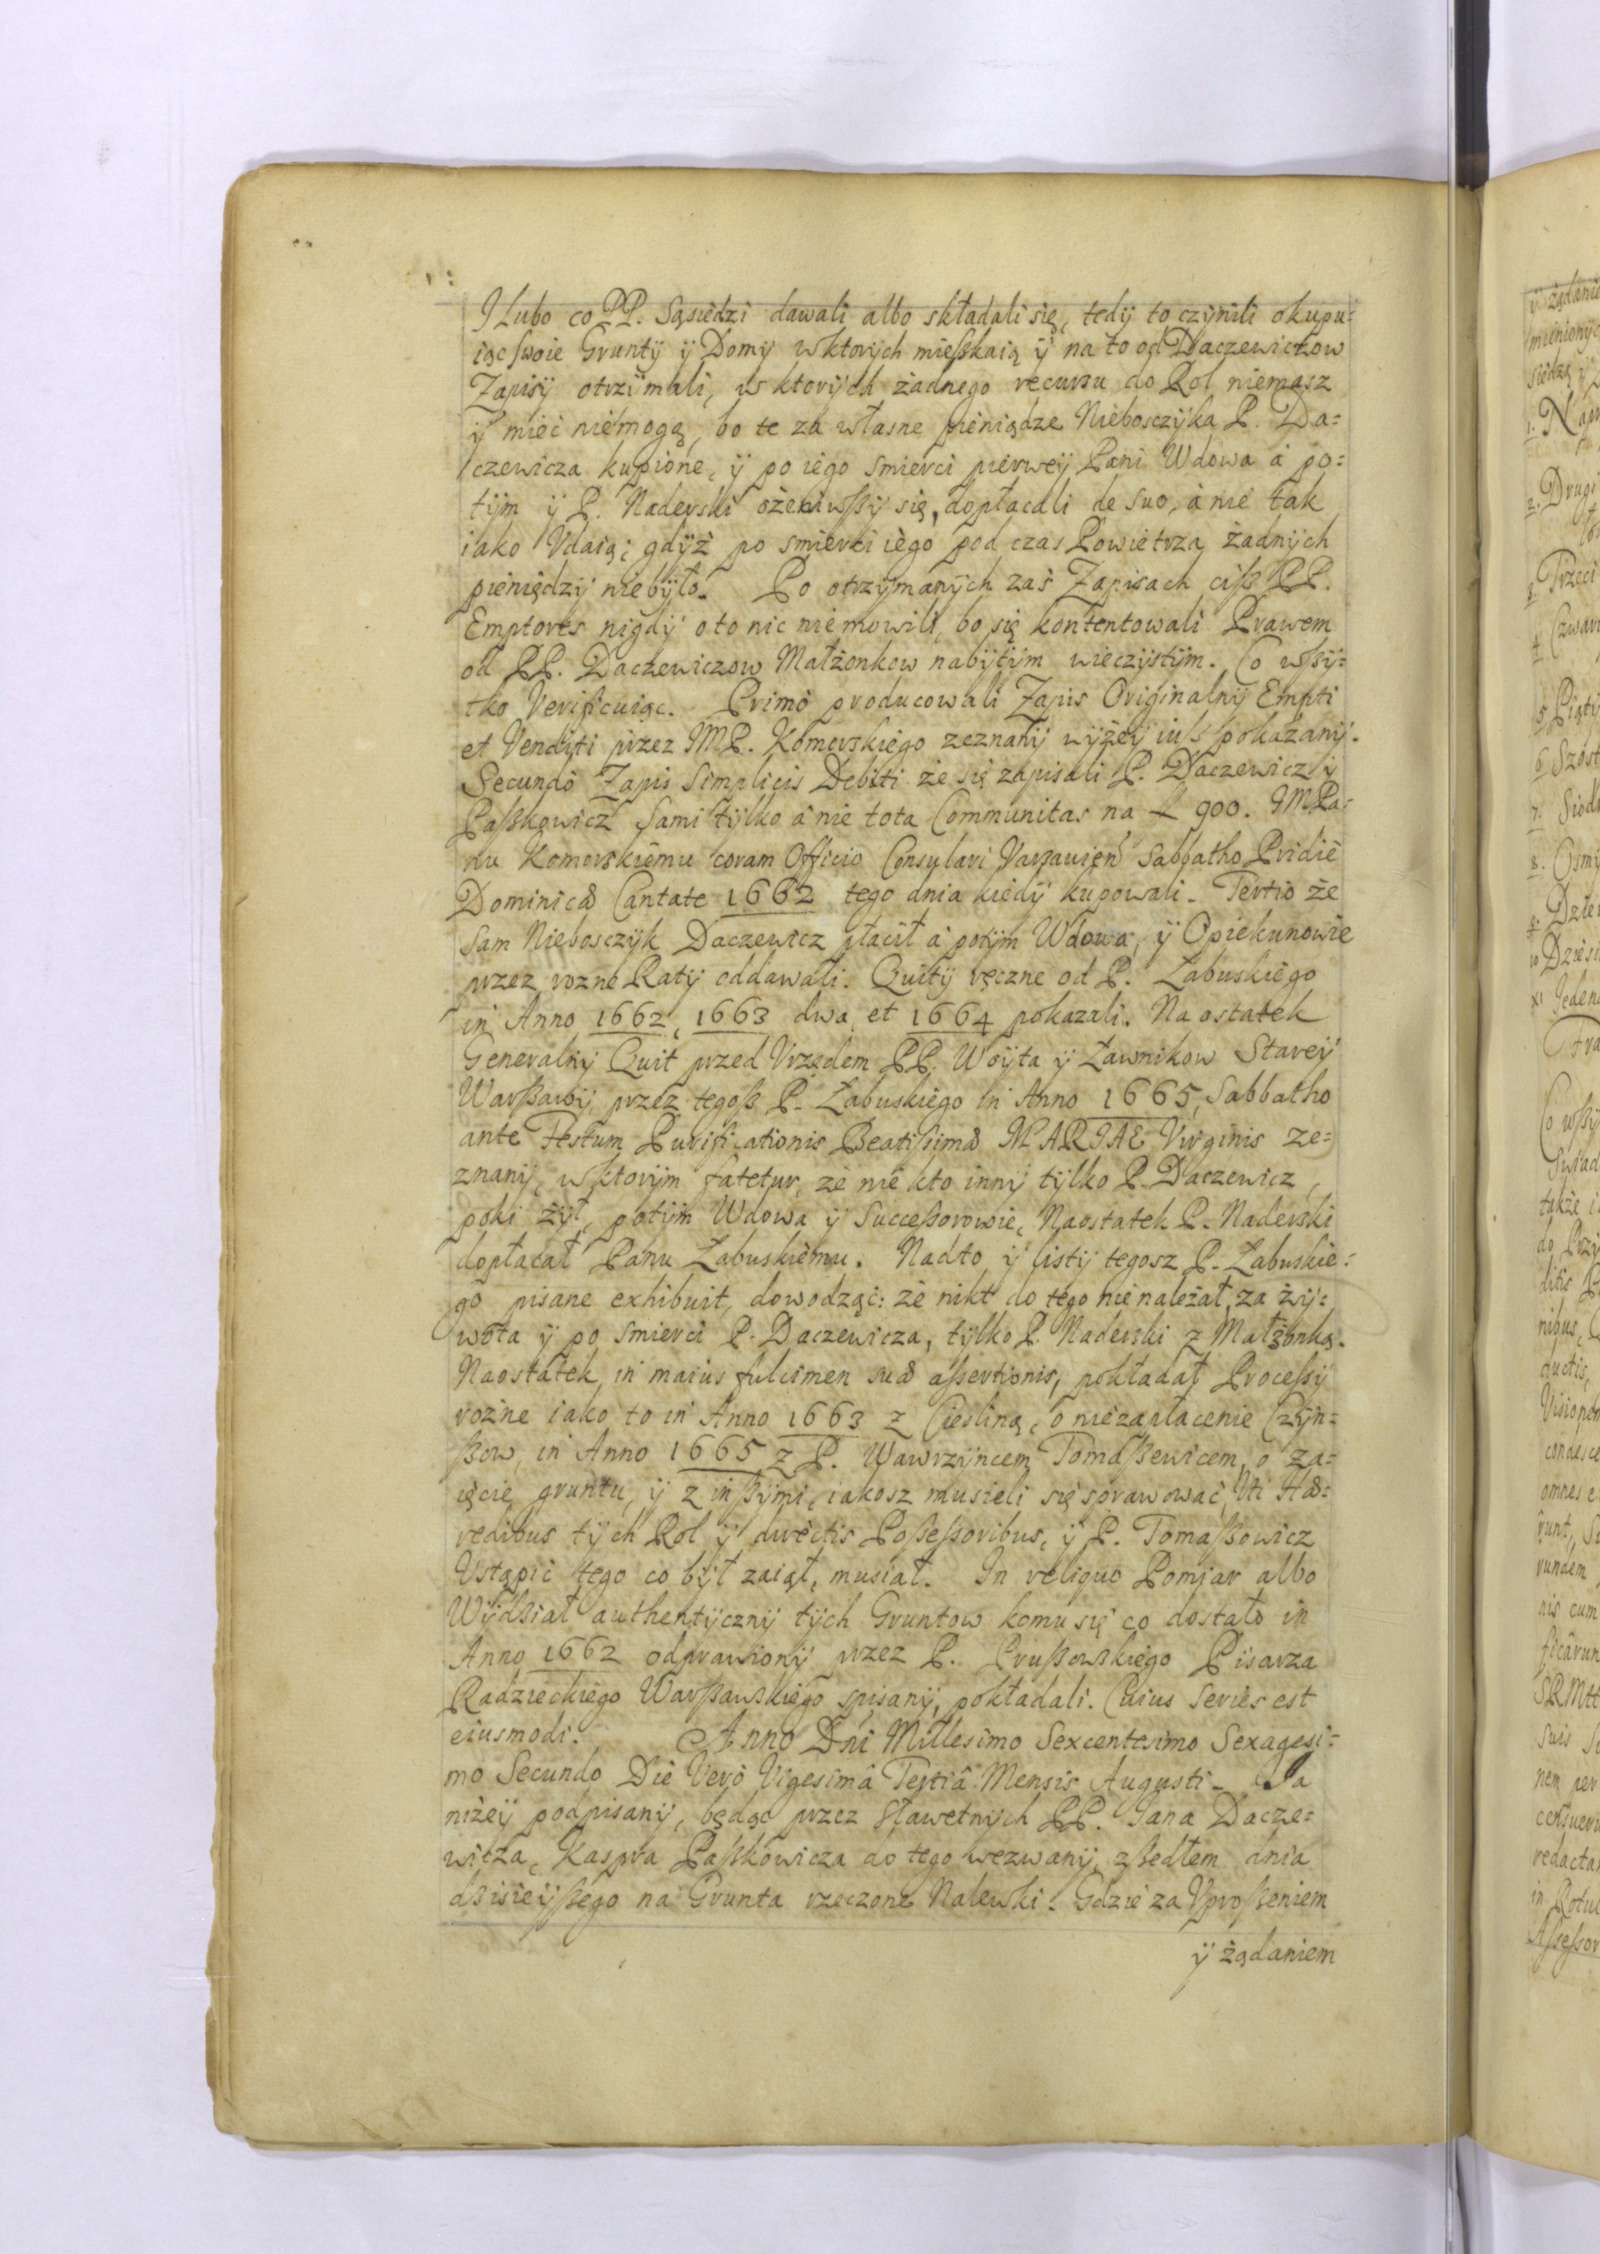 I Lubo co PP. Sąsiedzi dawali albo składali się, tedÿ to czÿnili okupu=
iąc swoie Gruntÿ ÿ Domÿ wktorÿch mieszkaią ÿ na to od Daczewiczow
Zapisÿ otrzÿmali, w ktorÿch żadnego recursu do Rol niemasz
ÿ mieć niemogą, bo te za własne pieniądze Nieboszczÿka P. Da=
czewicza kupione, ÿ po iego smierci pierweÿ Pani Wdowa á po=
tÿm ÿ P. Naderski ożeniwszÿ się, dopłacali de suo, á nie tak
iako Udaią; gdÿż po smierci iego pod czas Powietrza żadnÿch
pieniędzÿ niebÿło. Po otrzÿmanÿch zaś Zapisach cisz PP.
Emptores nigdÿ oto nic niemowili, bo się kontentowali Prawem
od PP. Daczewiczow Małżonkow nabÿtÿm wieczÿstÿm. Co wsÿ=
tko Verificuiąc. Primò producowali Zapis Originalnÿ Empti
et Venditi przez IMP. Komorskiego zeznanÿ wÿżeÿ iusz pokazanÿ.
Secundò Zapis Simplicis Debiti że się zapisali P. Daczewicz ÿ
Paszkowicz sami tÿlko á nie tota Communitas na f 900. IMPa=
nu Komorskiemu coram Officio Consulari Varsavien Sabbatho Pridie
Dominicæ Cantate 1662 tego dnia kiedÿ kupowali. Tertiò że
Sam Nieboszczÿk Daczewicz płacił á potÿm Wdowa, ÿ Opiekunowie
przez rozne Ratÿ oddawali. Quitÿ ręczne od P. Łabuskiego
in Anno 1662, 1663 dwa et 1664 pokazali. Na ostatek
Generalnÿ Quit przed Vrzędem PP. Woÿta ÿ Ławnikow Stareÿ
Warszawÿ przez tegosz P. Łabuskiego in Anno 1665, Sabbatho
ante Festum Purificationis Beatissimæ MARIAE Virginis ze=
znanÿ, w ktorÿm fatetur, że nie kto innÿ tÿlko P. Daczewicz,
poki żÿł, potÿm Wdowa ÿ Successorowie, Naostatek P. Naderski
dopłacał Panu Łabuskiemu. Nadto ÿ listÿ tegosz P. Łabuskie=
go pisane exhibuit, dowodząc: że nikt do tego nie należał, za żÿ=
wota ÿ po smierci P. Daczewicza, tÿlko P. Naderski z Małżonką.
Naostatek in maius fulcimen suæ assertionis, pokładał Processÿ
rożne iako to in Anno 1663 z Cieśliną, o niezapłacenie Czÿn=
szow, in Anno 1665 z P. Wawrzÿncem Tomaszewicem, o za=
ięcie gruntu, ÿ z inszÿmi, iakosz musieli się sprawować, Uti Hæ=
redibus tÿch Rol ÿ directis Possessoribus, ÿ P. Tomaszowicz
Ustąpić tego co bÿł zaiął, musiał. In reliquo Pomiar albo
Wÿdział authentÿcznÿ tÿch Gruntow komu się co dostało in
Anno 1662 odprawionÿ przez P. Pruszowskiego Pisarza
Radzieckiego Warszawskiego spisanÿ, pokładali. Cuius series est
eiusmodi. Anno Dni Millesimo Sexcentesimo Sexagesi=
mo Secundo Die Verò Vigesimâ Tertiâ Mensis Augusti. Ja
niżeÿ podpisanÿ, będąc przez Sławetnÿch PP. Jana Dacze=
wicza, Kaspra Paszkowicza do tego wezwanÿ, zszedłem dnia
dzisieÿszego na Grunta rzeczone Nalewki. Gdzie za Vproszeniem
ÿ żądaniem